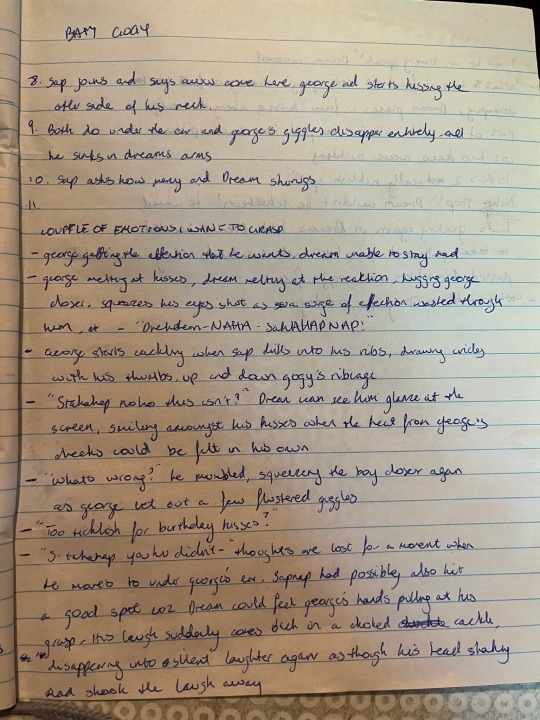 8. Sap joins and says aww come here george and starts kissing the
other side of his neck.
9. Both do under the ear and george's giggles disapper entirely and
he sinks in dreams arms
10. Sap asks how many and Dream shrugs
11.
COUPLE OF EMOTIONS I WANT TO GRASP
- george getting the attention that he wants, dream unable to stay mad
- george melting at kisses, dream melting at the reaction, hugging george
closer, squeezes his eyes shut as a surge of affection washed through
him,
- George starts cackling when sap drills into his ribs, drawing circles
with his thumbs, up and down gogy's ribcage
- "Stahahap noho this isn't?" Dream can see him glance at the
screen, smiling amongst his kisses when the heat from george's
cheeks could be felt in his own
- "What's wrong?" he mumbled, squeezing the boy closer again
as george let out a few flustered giggles
- "Too ticklish for birthday kisses?"
- "S-tahahap you ho didn't-" thoughts are lost for a moment when
he moves to under george's ear. Sapnap had possibly also hit
a good spot coz Dream could feel george's hands pulling at his
grasp. His laugh suddenly comes back in a choked cackle,
disappearing into silent laughter again as though his head shaking
had shook the laugh away